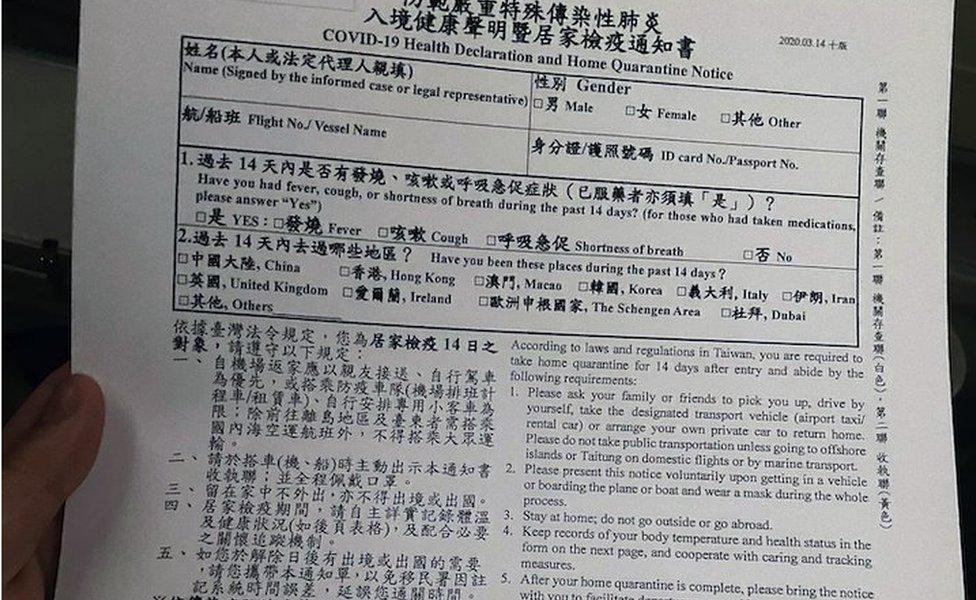 防範嚴重特殊傳染性肺炎
入境健康聲明暨居家檢疫通知書
COVID-19 Health Declaration and Home Quarantine Notice
2020.03.14 十版
姓名(本人或法定代理人親填)
Name (Signed by the informed case or legal representative)
性別 Gender
□男 Male □女 Female □其他 Other
航/船班 Flight No./ Vessel Name
身分證/護照號碼 ID card No./Passport No.
1.過去 14 天內是否有發燒、咳嗽或呼吸急促症狀（已服藥者亦須填「是」）？
Have you had fever, cough, or shortness of breath during the past 14 days? (for those who had taken medications,
please answer “Yes”)
□是 YES：□發燒 Fever □咳嗽 Cough □呼吸急促 Shortness of breath □否 No
2.過去 14 天內去過哪些地區？ Have you been these places during the past 14 days？
□中國大陸, China □香港, Hong Kong □澳門, Macao □韓國, Korea □義大利, Italy □伊朗, Iran
□英國, United Kingdom □愛爾蘭, Ireland □歐洲申根國家, The Schengen Area □杜拜, Dubai
□其他, Others
依據臺灣法令規定，您為居家檢疫 14 日之
對象，請遵守以下規定：
一、自機場返家應以親友接送、自行駕車
為優先，或搭乘防疫車隊(機場排班計
程車/租賃車)、自行安排專用小客車為
限；除前往離島地區及臺東者需搭乘
國內海空運航班外，不得搭乘大眾運
輸。
二、請於搭車(機、船)時主動出示本通知書
收執聯；並全程佩戴口罩。
三、留在家中不外出，亦不得出境或出國。
四、居家檢疫期間，請自主詳實記錄體溫
及健康狀況(如後頁表格)，及配合必要
之關懷追蹤機制。
五、如您於解除日後有出境或出國的需要
，請您攜帶本通知單，以免移民署因註
記系統時間誤差，延誤您通關時間。
According to laws and regulations in Taiwan, you are required to
take home quarantine for 14 days after entry and abide by the
following requirements:
1. Please ask your family or friends to pick you up, drive by
yourself, take the designated transport vehicle (airport taxi/
rental car) or arrange your own private car to return home.
Please do not take public transportation unless going to offshore
islands or Taitung on domestic flights or by marine transport.
2. Please present this notice voluntarily upon getting in a vehicle
or boarding the plane or boat and wear a mask during the whole
process.
3. Stay at home; do not go outside or go abroad.
4. Keep records of your body temperature and health status in the
form on the next page, and cooperate with caring and tracking
measures.
5. After your home quarantine is complete, please bring the notice
with you to facilitate
第一聯 機關存查聯／備註：第一聯 機關存查聯(白色)，第二聯 收執聯(黃色)